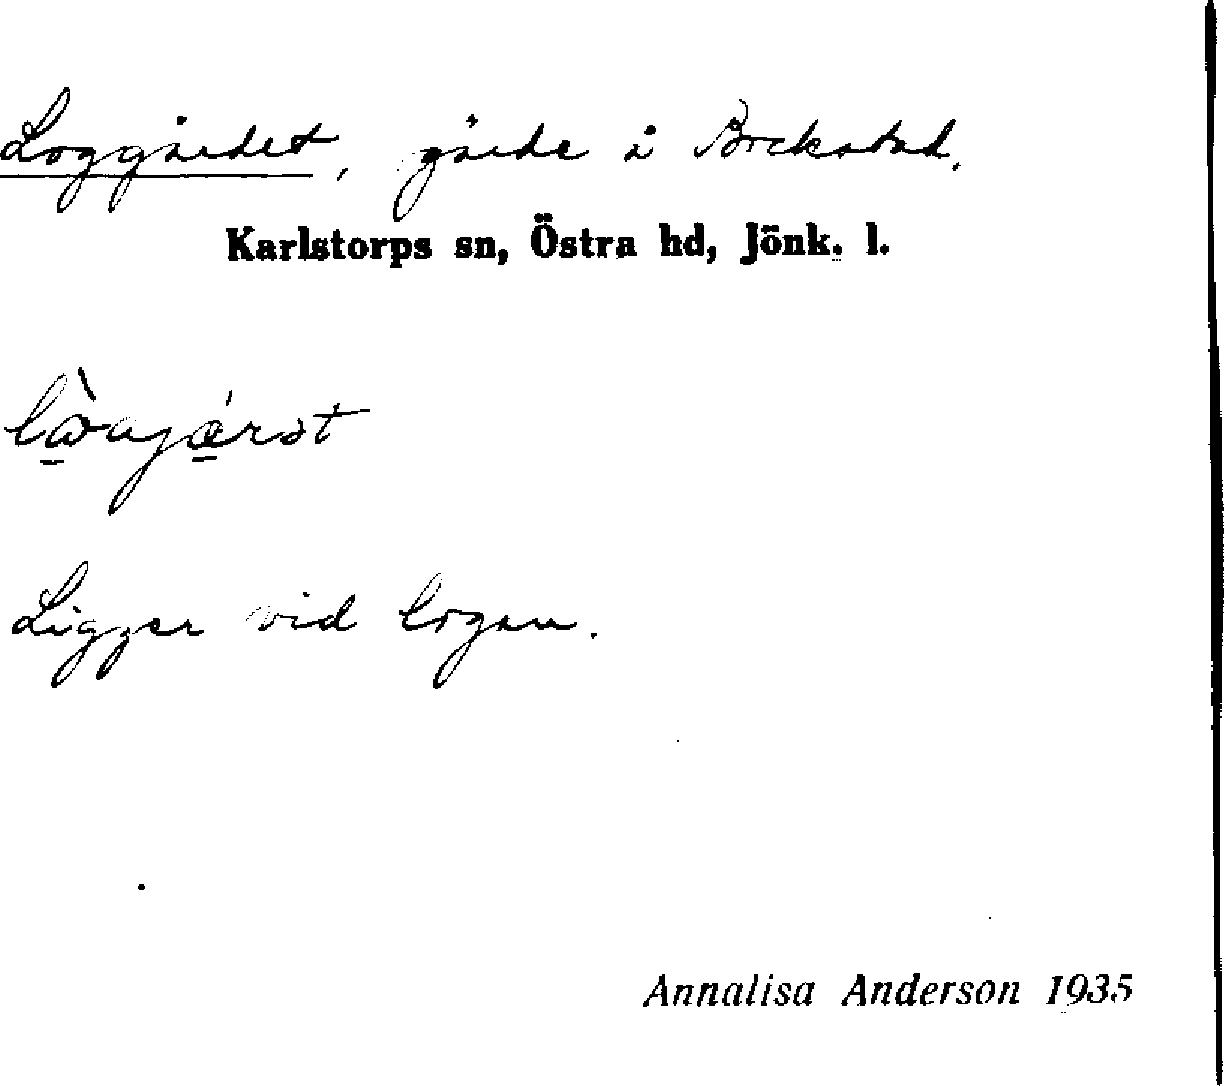 Loggärdet, gärde å Bockstad.
Karlstorps sn, Östra hd, Jönk. l.
Ligger vid logen.
Annalisa Anderson 1935